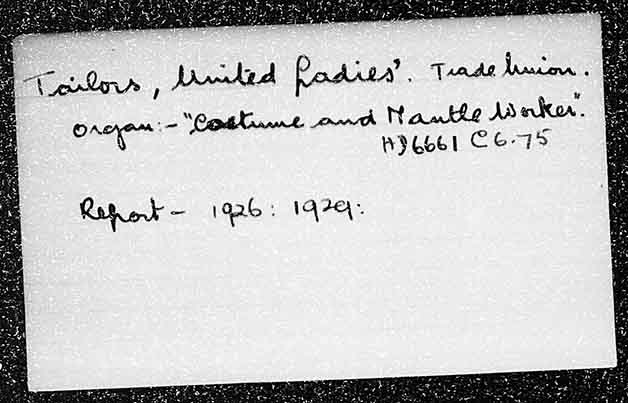 Tailors, United Ladies'. Trade Union.
Organ:- "Costume and Mantle Worker".
HD6661 C6.75
Report - 1926: 1929: